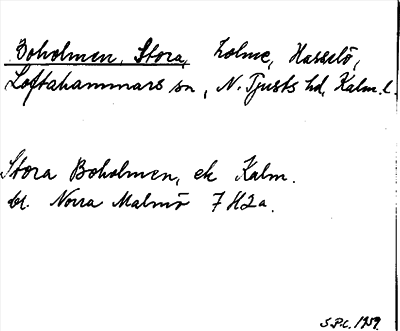 Boholmen, Stora, holme, Hasselö,
Loftahammars sn, N. Tjusts hd, Kalm. l.
Stora Boholmen, ek Kalm.
br. Norra Malmö 7 H2a.
S.P.C. 1959